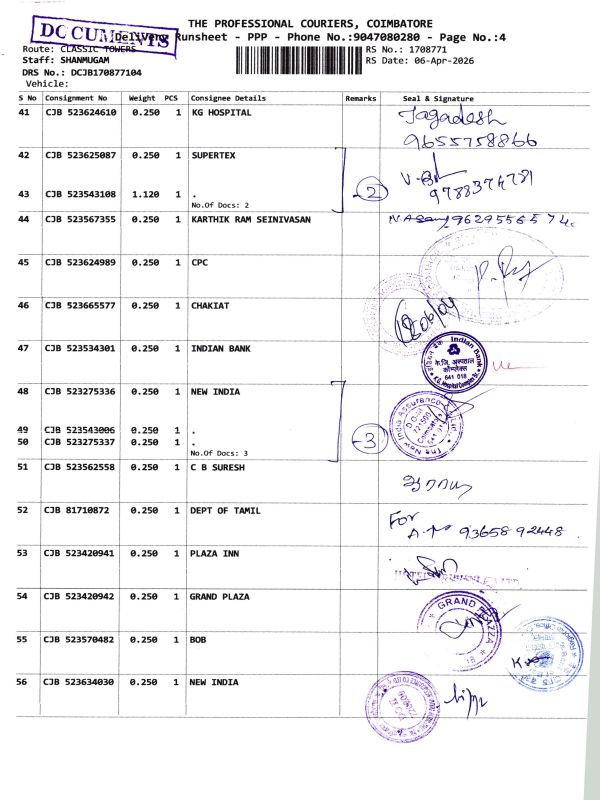 THE PROFESSIONAL COURIERS, COIMBATORE
DOCUMENTS
Delivery Runsheet - PPP - Phone No.:9047080280 - Page No.:4
Route: CLASSIC TOWERS
RS No.: 1708771
Staff: SHANMUGAM
RS Date: 06-Apr-2026
DRS No.: DCJB170877104
Vehicle:
S No Consignment No Weight PCS Consignee Details Remarks Seal & Signature
41 CJB 523624610 0.250 1 KG HOSPITAL Jagadesh
9655758866
42 CJB 523625087 0.250 1 SUPERTEX
43 CJB 523543108 1.120 1 . 2 9788374781
No.Of Docs: 2
44 CJB 523567355 0.250 1 KARTHIK RAM SEINIVASAN
45 CJB 523624989 0.250 1 CPC
46 CJB 523665577 0.250 1 CHAKIAT
47 CJB 523534301 0.250 1 INDIAN BANK Indian Bank
के.जि. अस्पताल
641 018
48 CJB 523275336 0.250 1 NEW INDIA
49 CJB 523543006 0.250 1 . 3 The New India Assurance
50 CJB 523275337 0.250 1 .
No.Of Docs: 3
51 CJB 523562558 0.250 1 C B SURESH
52 CJB 81710872 0.250 1 DEPT OF TAMIL For
93658 92448
53 CJB 523420941 0.250 1 PLAZA INN
54 CJB 523420942 0.250 1 GRAND PLAZA GRAND PLAZZA
55 CJB 523570482 0.250 1 BOB
56 CJB 523634030 0.250 1 NEW INDIA